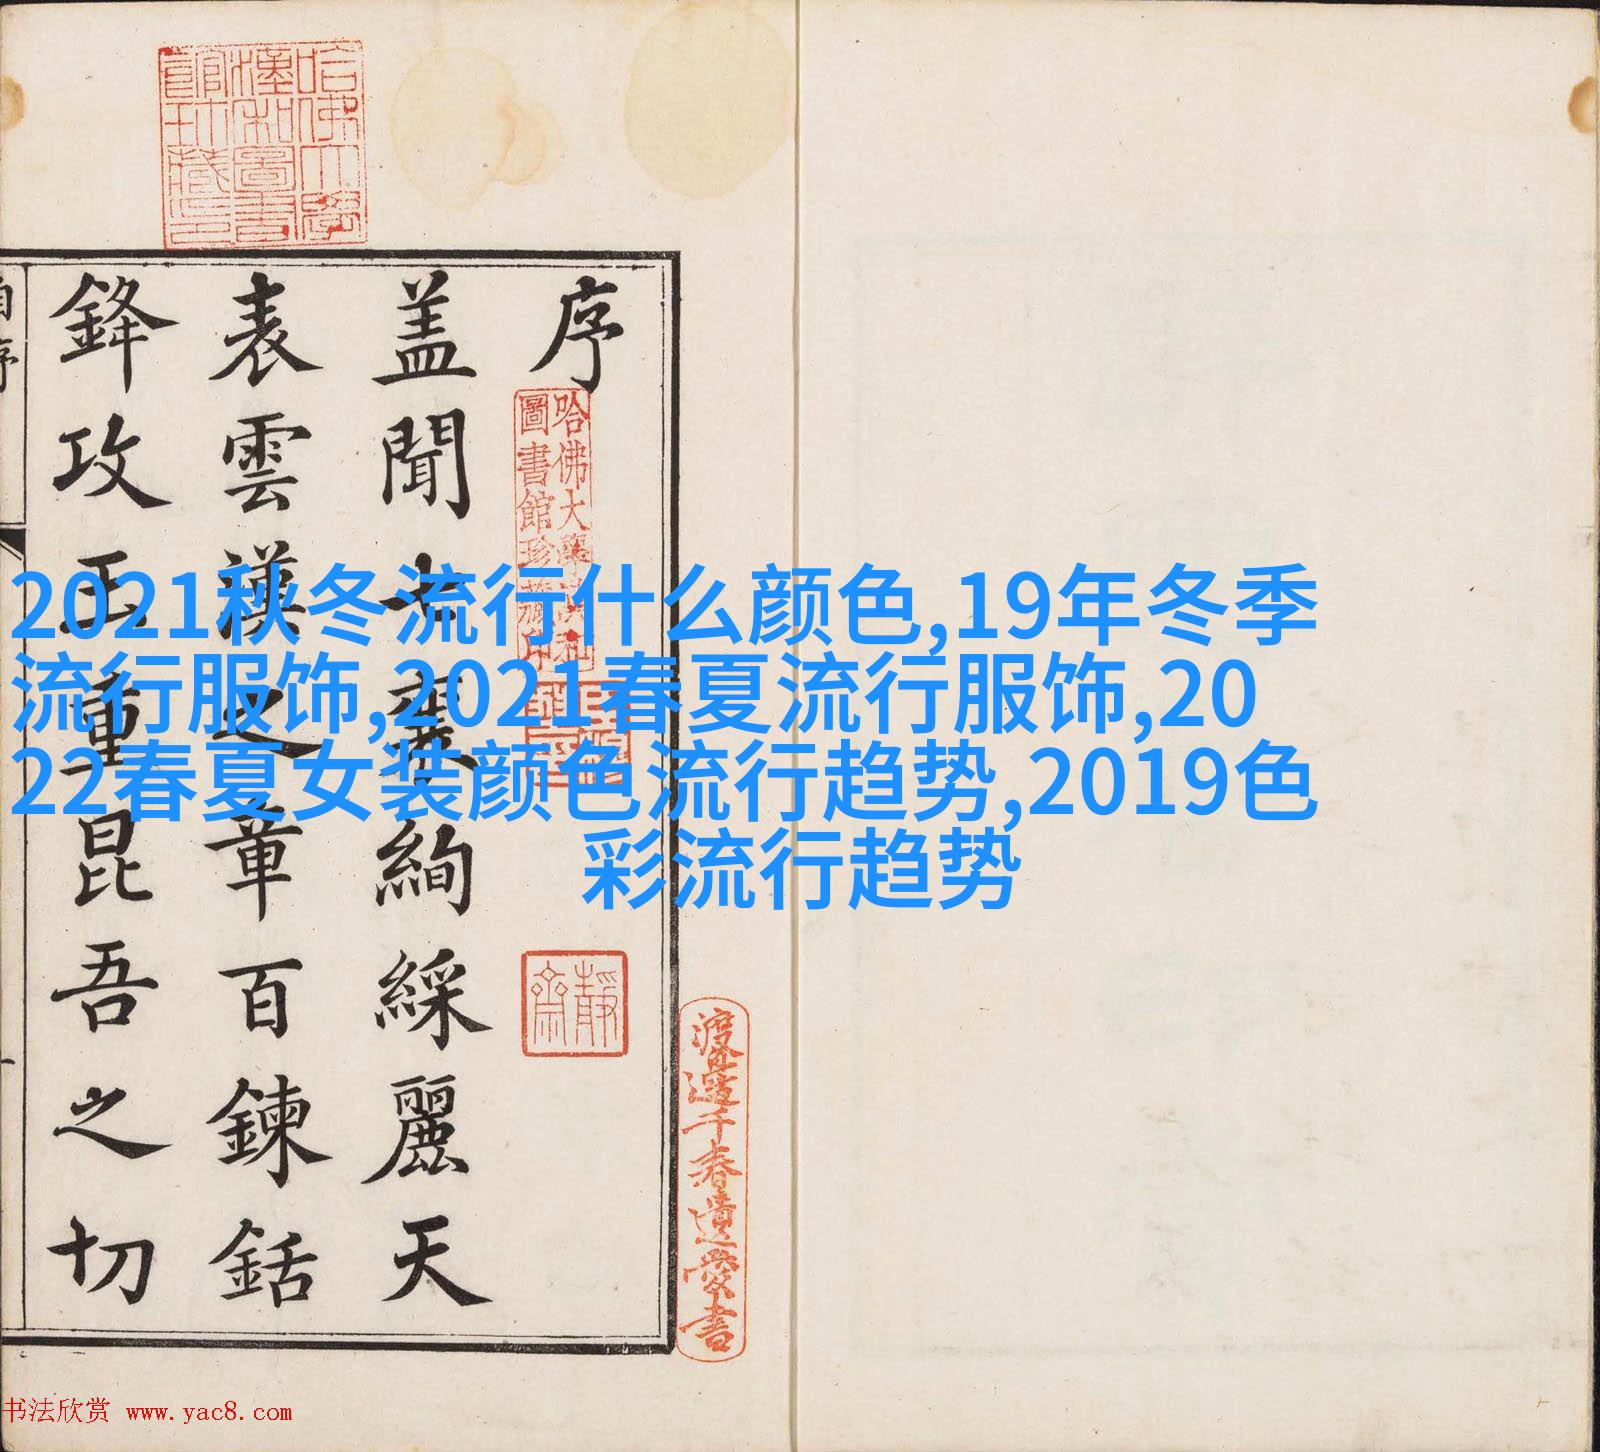 2021秋冬流行什么颜色,19年冬季
流行服饰,2021春夏流行服饰,20
22春夏女装颜色流行趋势,2019色
彩流行趋势
哈佛大學
漢和圖書
館珍藏印
序
蓋聞七襄絢綵麗天
表雲漢之章百鍊銛
鋒攻玉重昆吾之切
自序
哈佛大學漢和
圖書館珍藏印
靜齋
渡邊千春遺愛書
书法欣赏 www.yac8.com